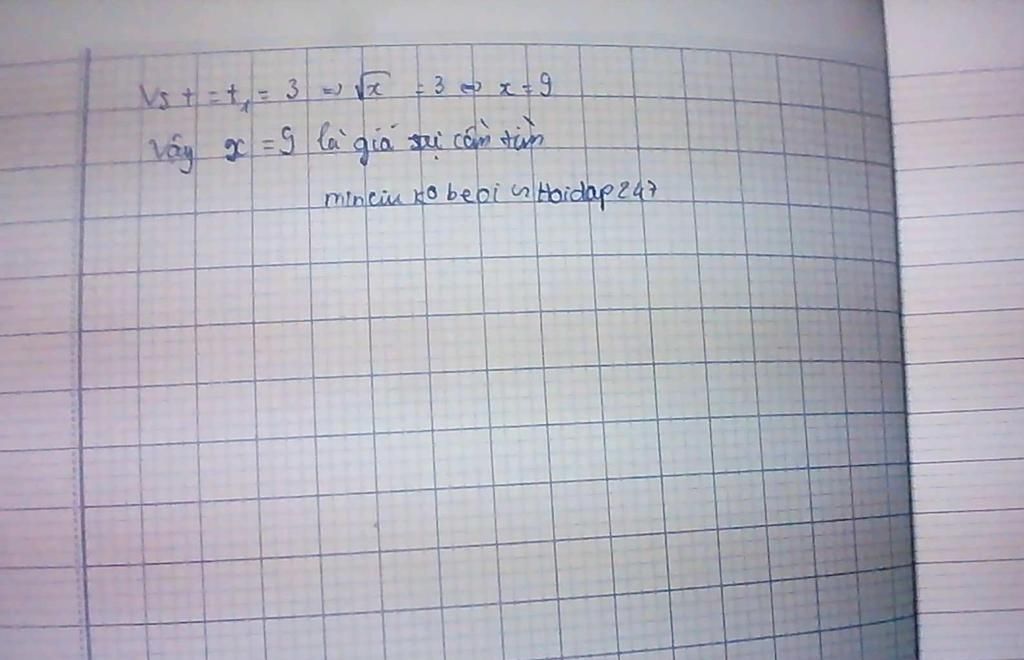 Vs t = t₁ = 3 => √x = 3 <=> x = 9
Vậy x = 9 là giá trị cần tìm
minciu ko bedi ∽ Hoidap247